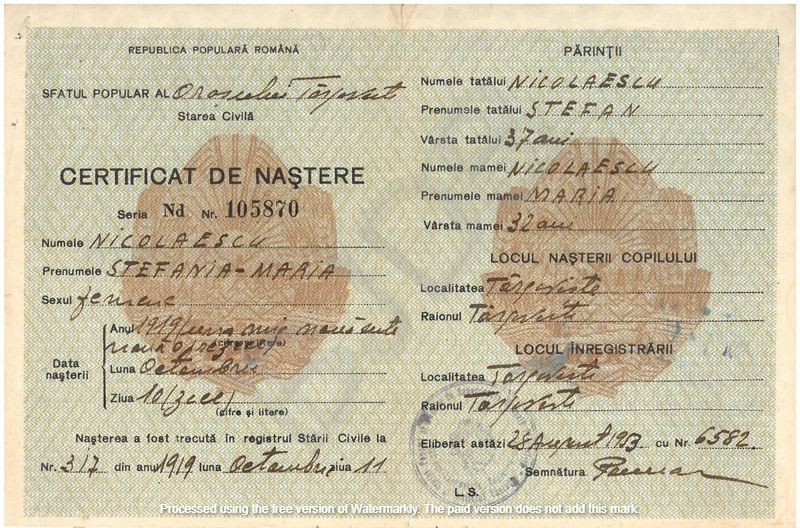 REPUBLICA POPULARĂ ROMÂNĂ
SFATUL POPULAR AL Orașului Târgoviște
Starea Civilă
CERTIFICAT DE NAŞTERE
Seria Nd Nr. 105870
Numele NICOLAESCU
Prenumele STEFANIA-MARIA
Sexul femeiesc
Data nașterii
Anul 1919 (una mie nouă sute
nouăsprezece)
(cifre și litere)
Luna Octombrie
Ziua 10 (zece)
(cifre și litere)
Nașterea a fost trecută în registrul Stării Civile la
Nr. 317 din anul 1919 luna Octombrie ziua 11
PĂRINȚII
Numele tatălui NICOLAESCU
Prenumele tatălui ȘTEFAN
Vârsta tatălui 37 ani
Numele mamei NICOLAESCU
Prenumele mamei MARIA
Vârsta mamei 32 ani
LOCUL NAȘTERII COPILULUI
Localitatea Târgoviște
Raionul Târgoviște
LOCUL ÎNREGISTRĂRII
Localitatea Târgoviște
Raionul Târgoviște
Eliberat astăzi 28 August 1953 cu Nr. 6582
Semnătura
L.S.
Processed using the free version of Watermarkly. The paid version does not add this mark.